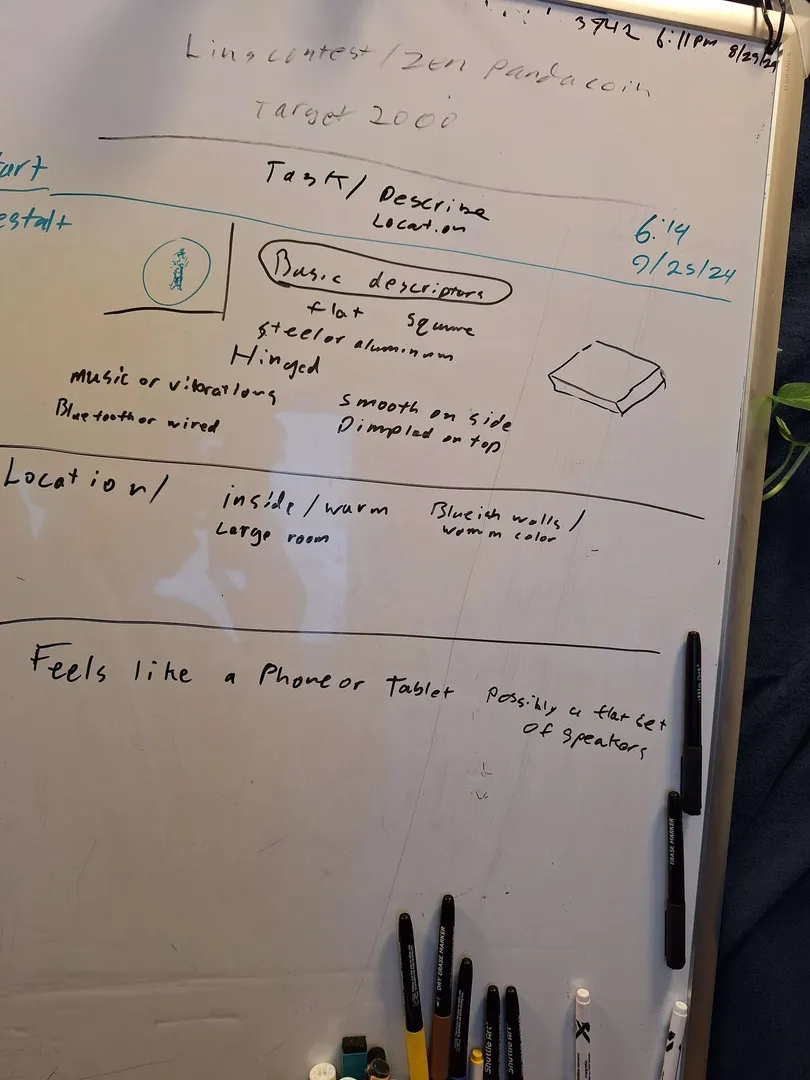 3942 6:11pm 8/29/24
Lins contest/zen pandacoin
Target 2000
Task/ Describe
Location
6:14
9/25/24
Basic descriptors
flat square
steel or aluminum
Hinged
music or vibrations
Bluetooth or wired
smooth on side
Dimpled on top
Location/
inside/warm
Large room
Blueish walls/
warm color
Feels like a Phone or Tablet
Possibly a flat set
of speakers
ERASE MARKER
DRY ERASE MARKER
Shuttle Art
Shuttle Art